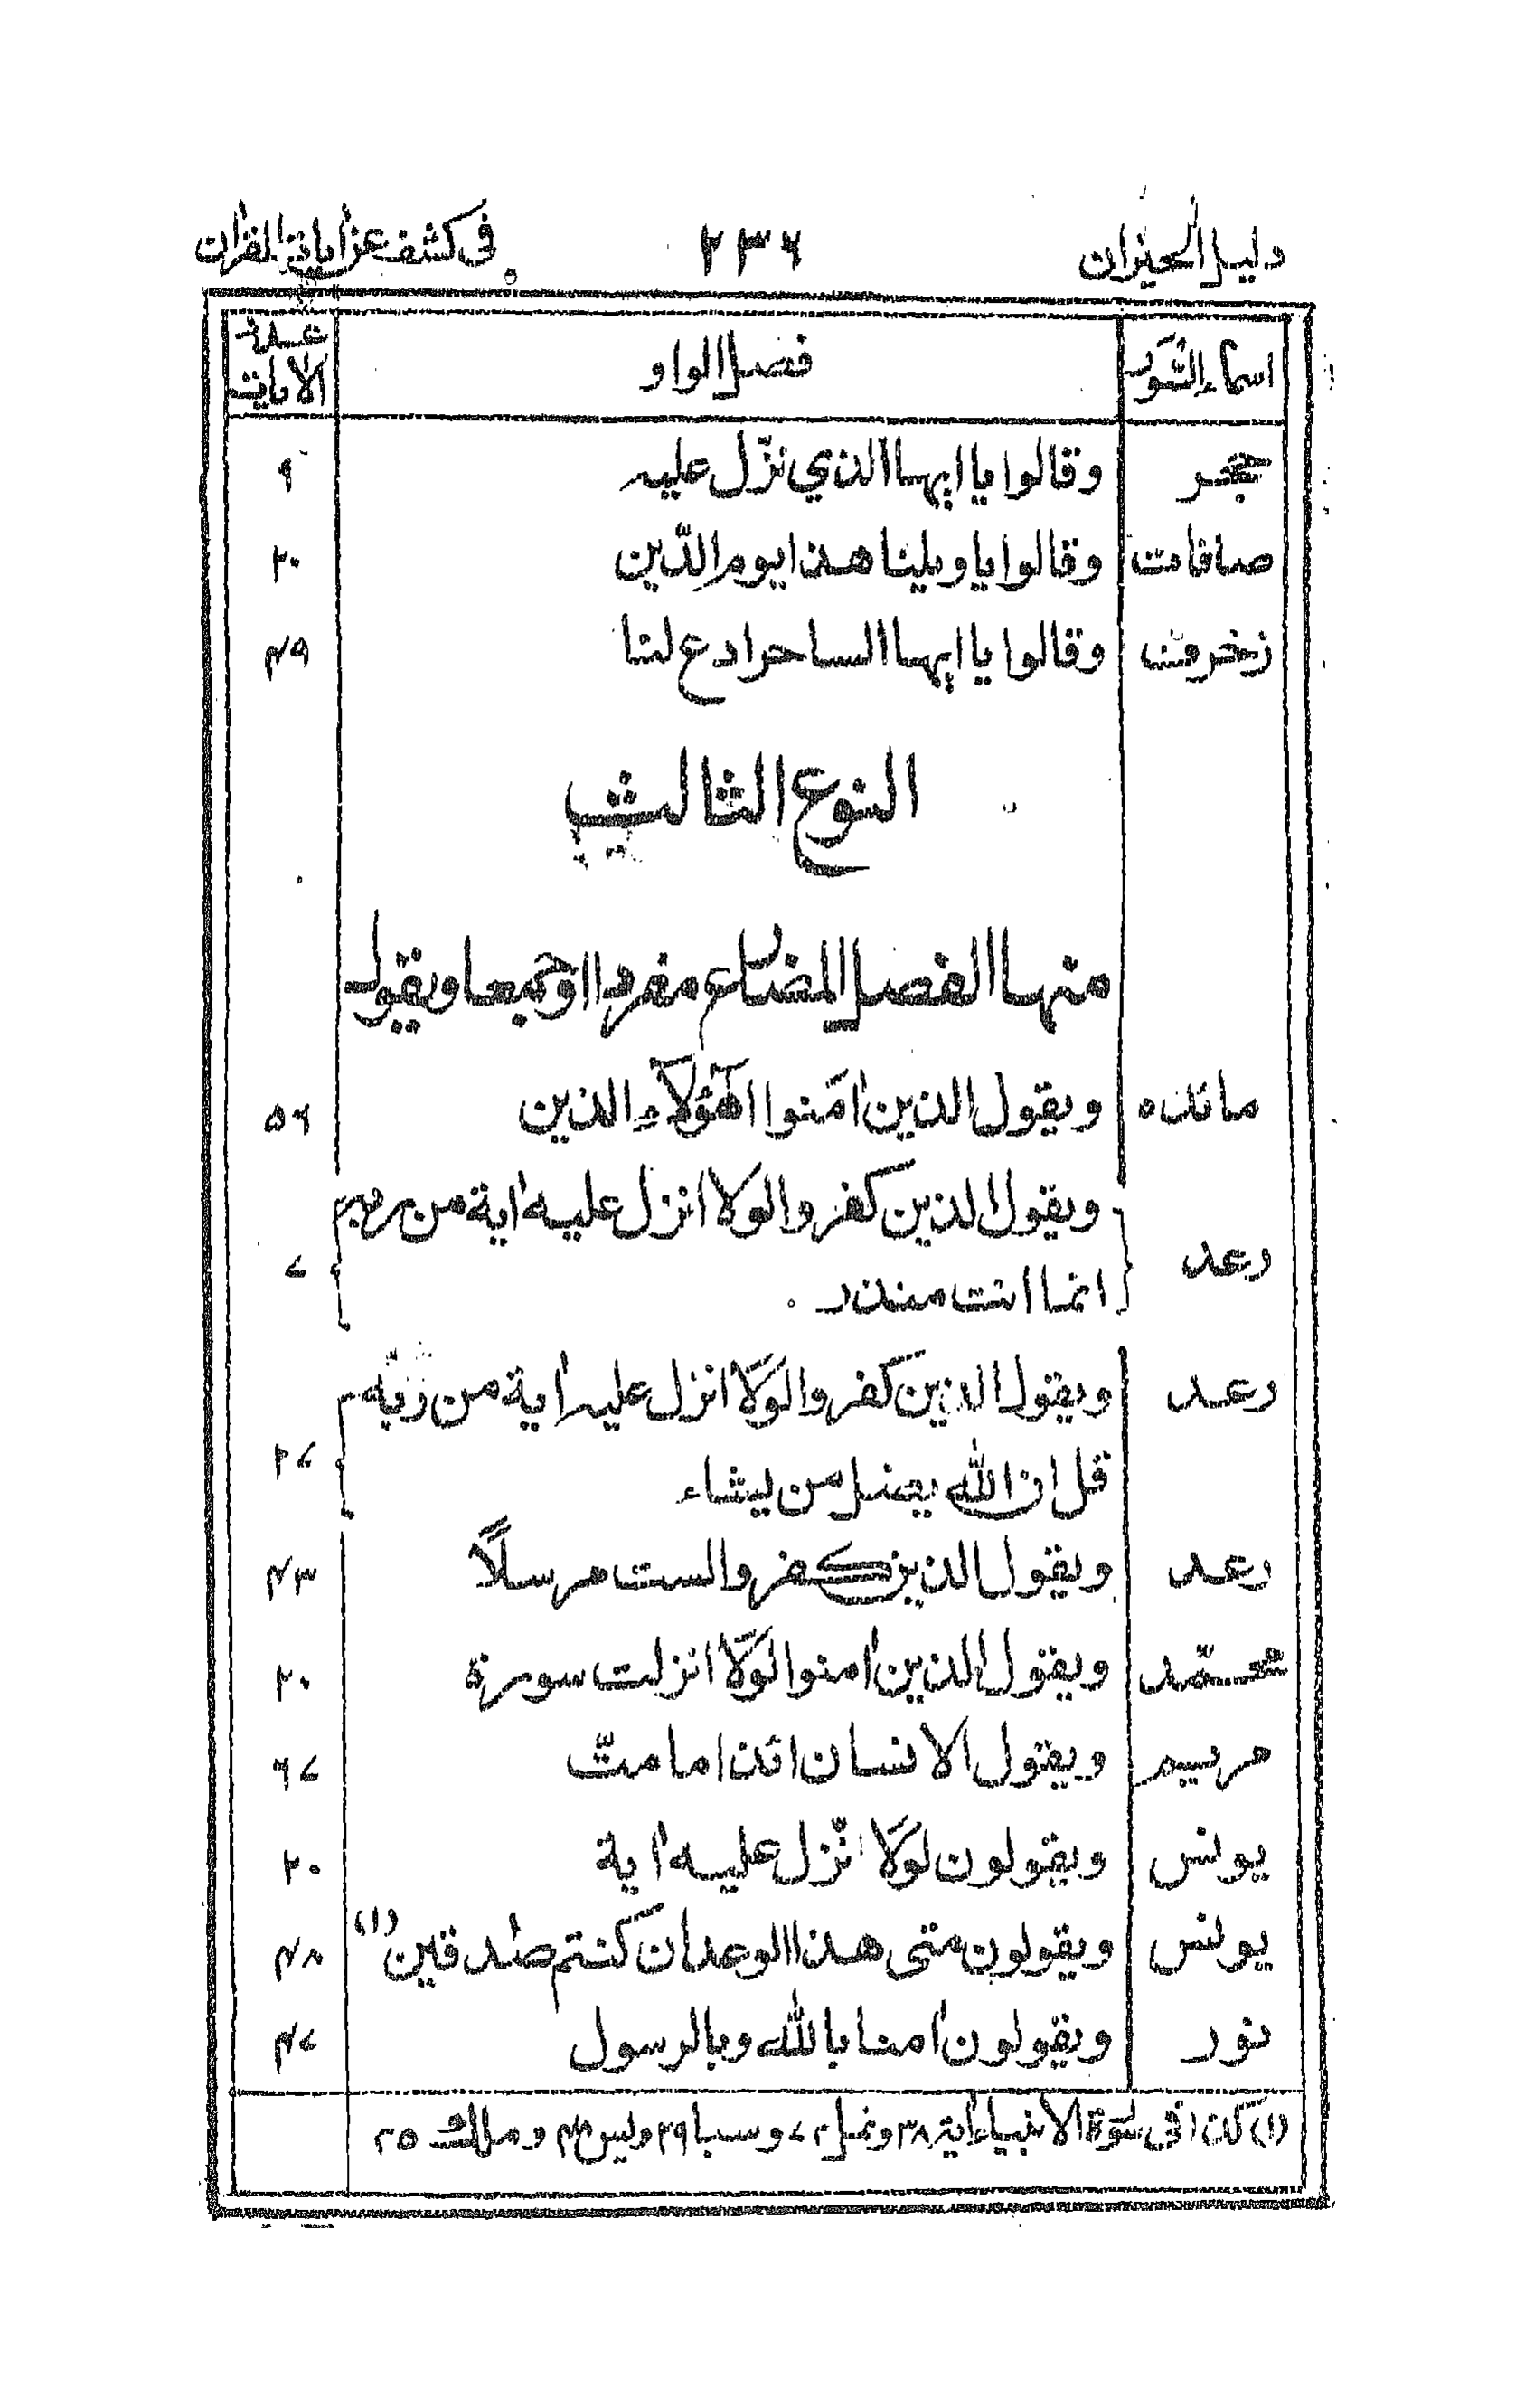 دليل الحيران ۲۳۶ في كشف عن اٰيات القراٰن
اسماء السّور فصل الواو عدة
الاٰيات
حجر وقالوا يا ايها الذي نزّل عليه ۶
صافات وقالوا يا ويلنا هذا يوم الدّين ۲۰
زخرف وقالوا يا ايها الساحر ادع لنا ۴۹
النوع الثالث
منها الفصل المضارع مفردا او جمعا ويقول
مائده ويقول الذين اٰمَنوا اهٰؤلآء الذين ۵۶
ويقول الذين كفروا لولا انزل عليه اٰية من ربه
رعد انما انت منذر ۷
رعد ويقول الذين كفروا لولَا انزل عليه اٰية من ربّه
قل ان الله يضل من يشاء ۲۷
رعد ويقول الذين كفروا لست مرسلًا ۴۳
محمّد ويقول الذين اٰمنوا لولَا انزلت سورة ۲۰
مريم ويقول الانسان ائذا ما متّ ۶۷
يونس ويقولون لولَا انزل عليه اٰية ۲۰
يونس ويقولون متى هذا الوعد ان كنتم صٰدقين (۱) ۴۸
نور ويقولون اٰمنا بالله وبالرسول ۴۷
(۱) كذا في سورة الانبياء اٰية ۳۸ ونمل ۷۱ وسبا ۲۹ ويس ۴۸ وملك ۲۵